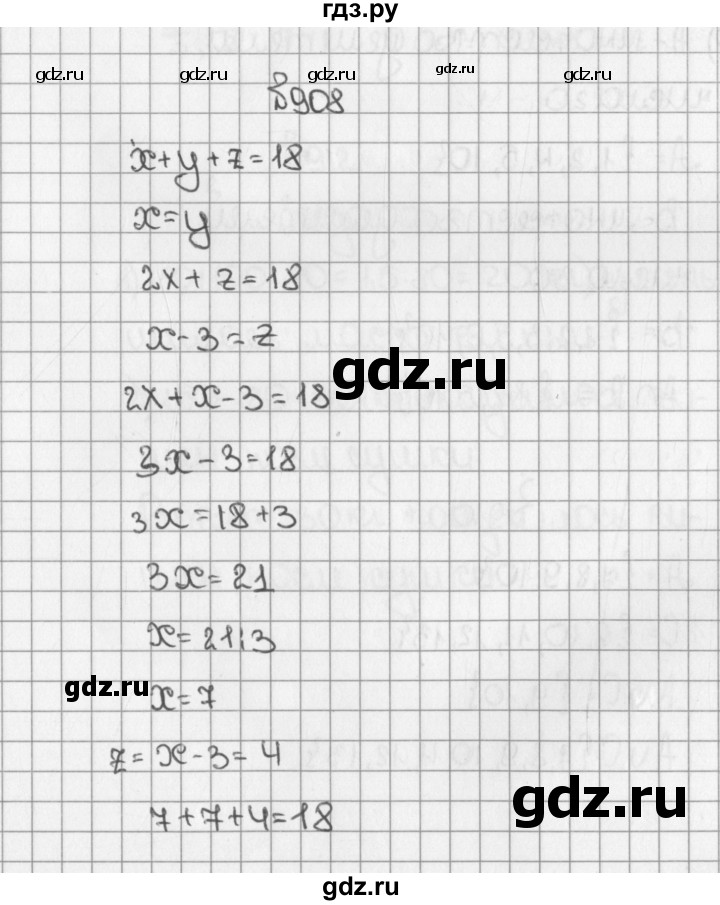 гдз.ру
gdz.ru gdz.ru gdz.ru gdz.ru
908
x+y+z=18
x=y
2x+z=18
x-3=z
gdz.ru
2x+x-3=18
3x-3=18
3x=18+3
3x=21
x=21:3
gdz.ru
x=7
z=x-3=4
gdz.ru
7+7+4=18
gdz.ru